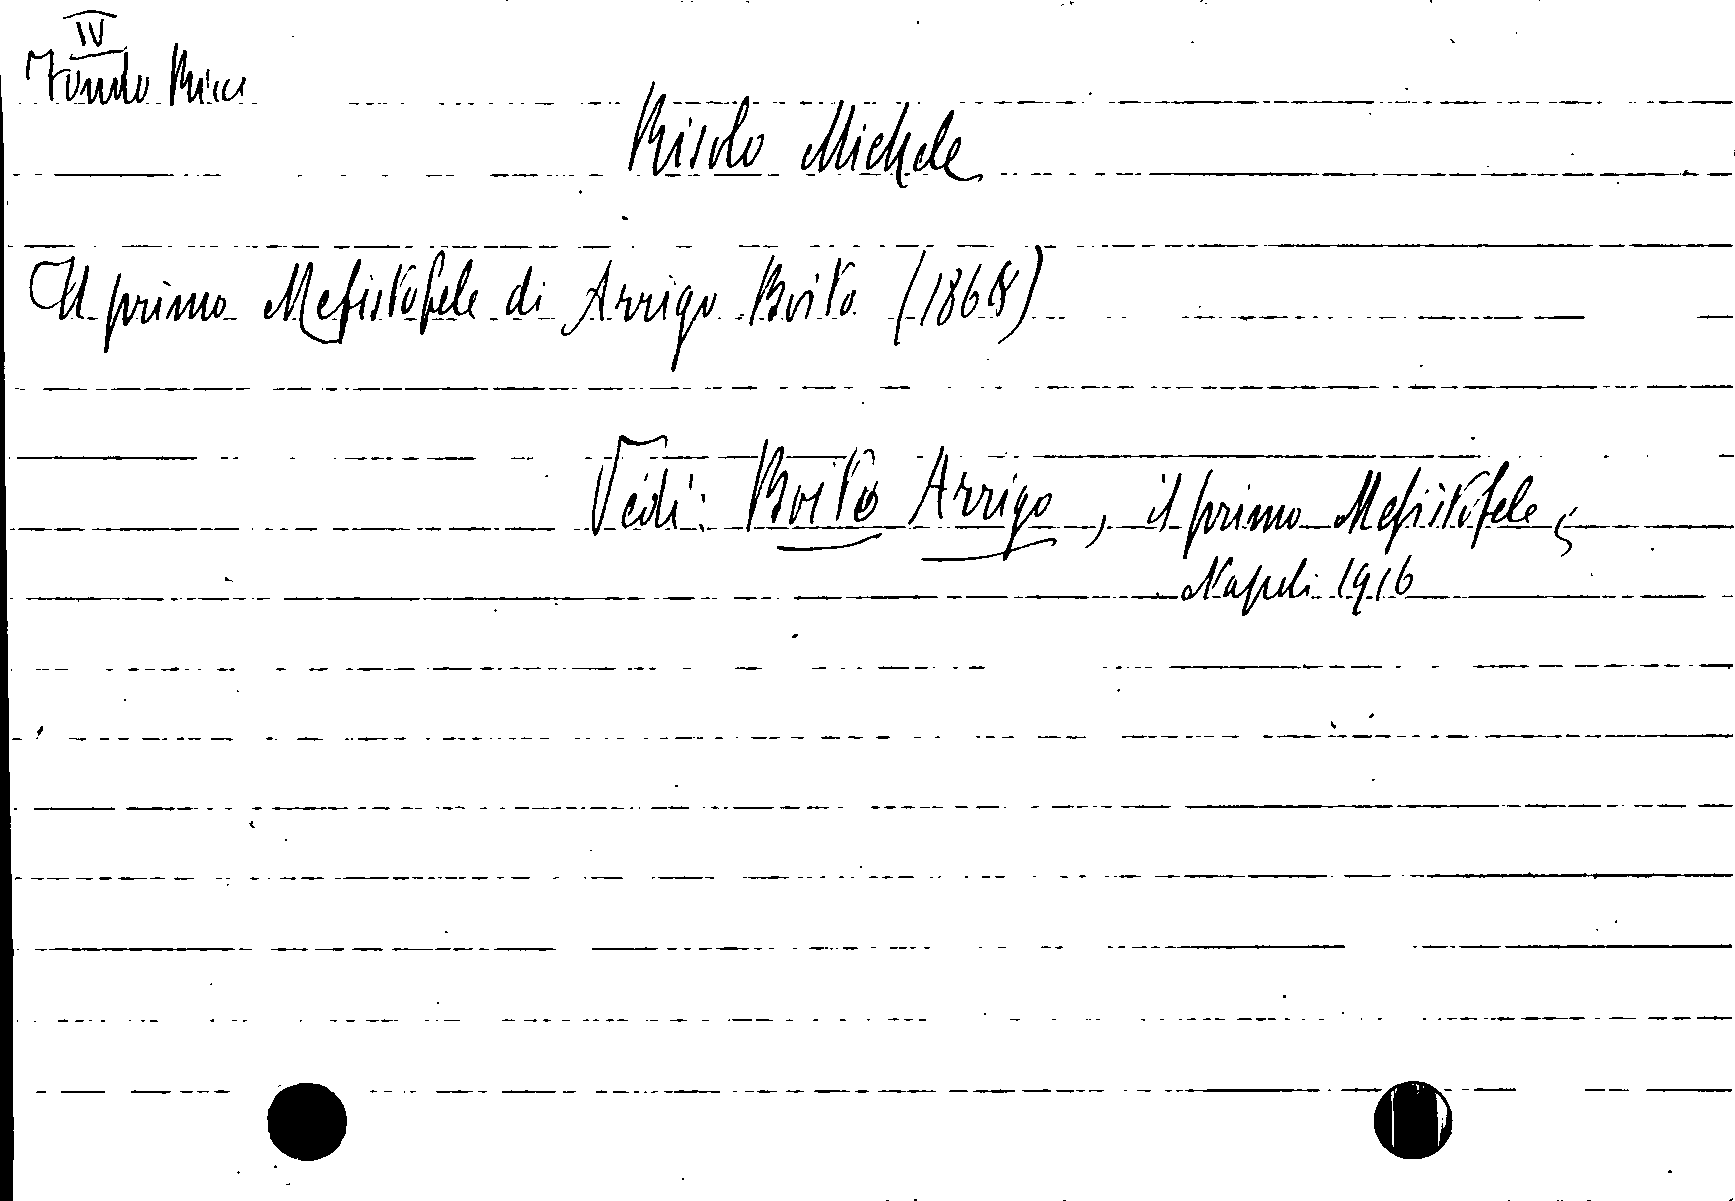 IV
Fondo Ricci
Risolo Michele
Il primo Mefistofele di Arrigo Boito (1868)
Vedi: Boito Arrigo, il primo Mefistofele,
Napoli 1916